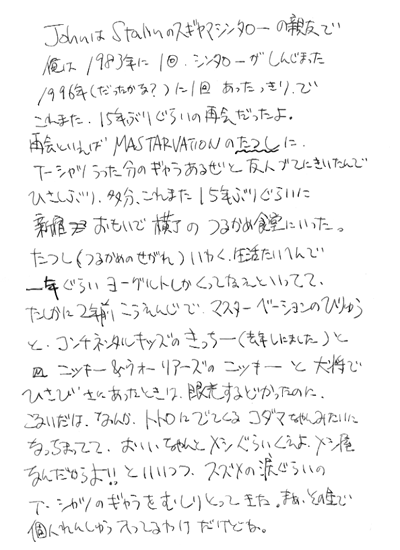 JohnはStalinのスギヤマシンタローの親友で
俺は1983年に1回、シンタローがしんじまった
1996年(だったかな?)に1回あったっきりで
これまた、15年ぶりぐらいの再会だったよ。
再会といえば MASTARVATIONのたつしに、
T-シャツうった分のギャラあるぜと友人づてにきいたんで
ひさしぶり、多分、これまた15年ぶりぐらいに
新宿 おもいで横丁のつるかめ食堂にいった。
たつし(つるかめのせがれ)いわく、生活たいへんで
一年ぐらいヨーグルトしかくってなえといってて、
たしかに2年前こうえんじで、マスターベーションのびりゅう
と、コンチネンタルキッズのきっちー(去年しにました)と
ニッキー&ウォーリアーズのニッキーと大将で
ひさびさにあったときは、眼光するどかったのに、
こないだは、なんか、トトロにでてくるコダマちゃんみたいに
なっちまってて、おいいちゃんとメシぐらいくえよメシ屋
なんだからよ!! といいつつ、スズメの涙ぐらいの
T-シャツのギャラをむしりとってきた。まあ、その金で
個人れんしゅう入ってるわけだけどね。